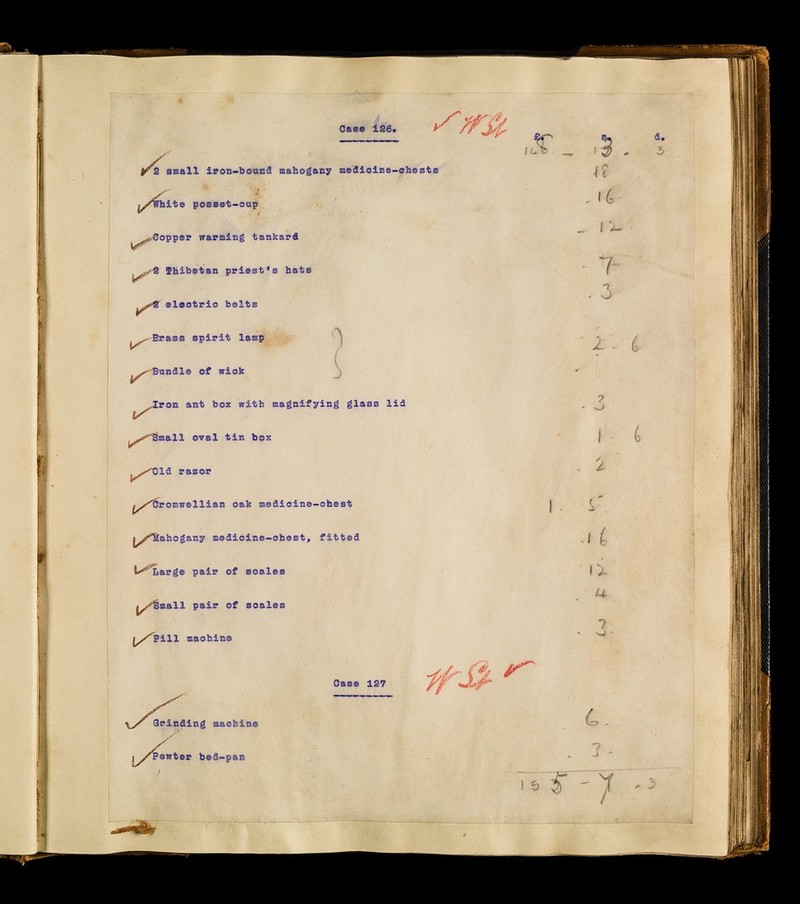 Case 126. ✓ W St
£. s. d.
148 - 13 - 3
✓ 2 small iron-bound mahogany medicine-chests 18
✓ White posset-cup - 16 -
✓ Copper warming tankard - 12 -
✓ 2 Thibetan priest's hats - 7 -
✓ 2 electric belts - 3 -
✓ Brass spirit lamp } 2 - 6
✓ Bundle of wick
✓ Iron ant box with magnifying glass lid - 3
✓ Small oval tin box 1 - 6
✓ Old razor - 2
✓ Cromwellian oak medicine-chest 1 - 5 -
✓ Mahogany medicine-chest, fitted - 16
✓ Large pair of scales 12
✓ Small pair of scales - 4
✓ Pill machine - 3 -
Case 127 W St ✓
✓ Grinding machine - 6 -
✓ Pewter bed-pan - 3 -
155 - 7 - 3